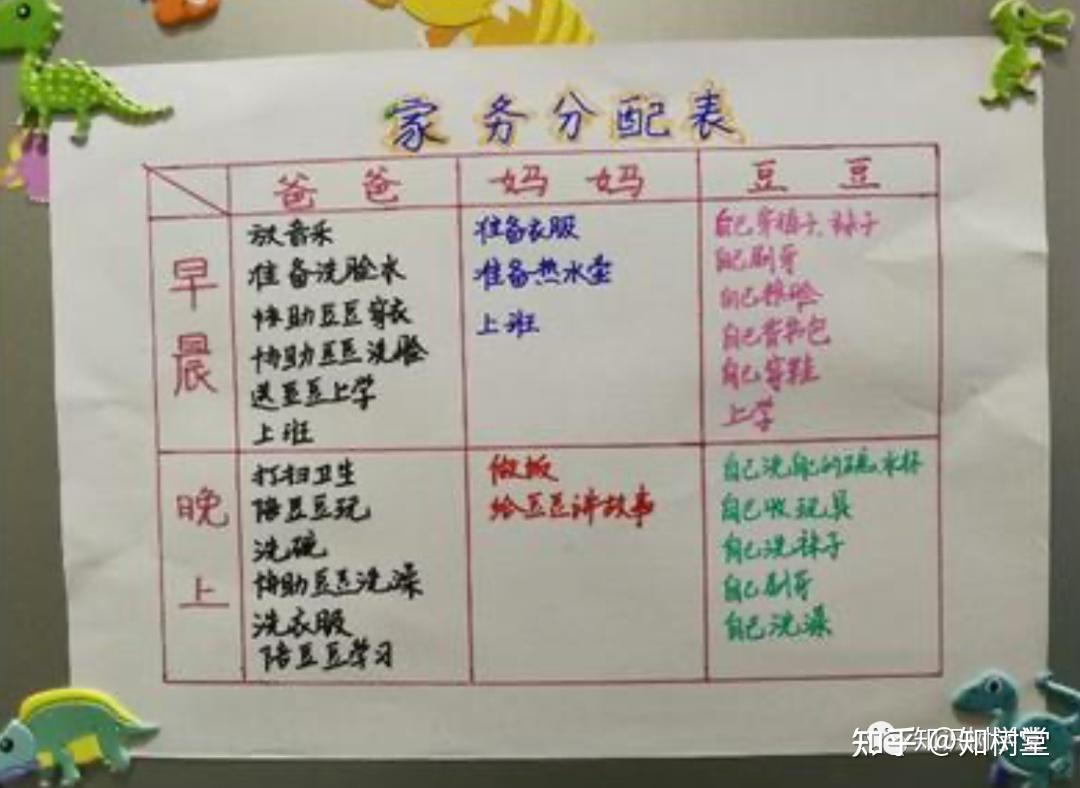 家务分配表
爸爸 妈妈 豆豆
早晨
放音乐
准备洗脸水
协助豆豆穿衣
协助豆豆洗脸
送豆豆上学
上班
准备衣服
准备热水壶
上班
自己穿裤子、袜子
自己刷牙
自己擦脸
自己背书包
自己穿鞋
上学
晚上
打扫卫生
陪豆豆玩
洗碗
协助豆豆洗澡
洗衣服
陪豆豆学习
做饭
给豆豆讲故事
自己洗自己的碗、水杯
自己收玩具
自己洗袜子
自己刷牙
自己洗澡
知乎 @知树堂